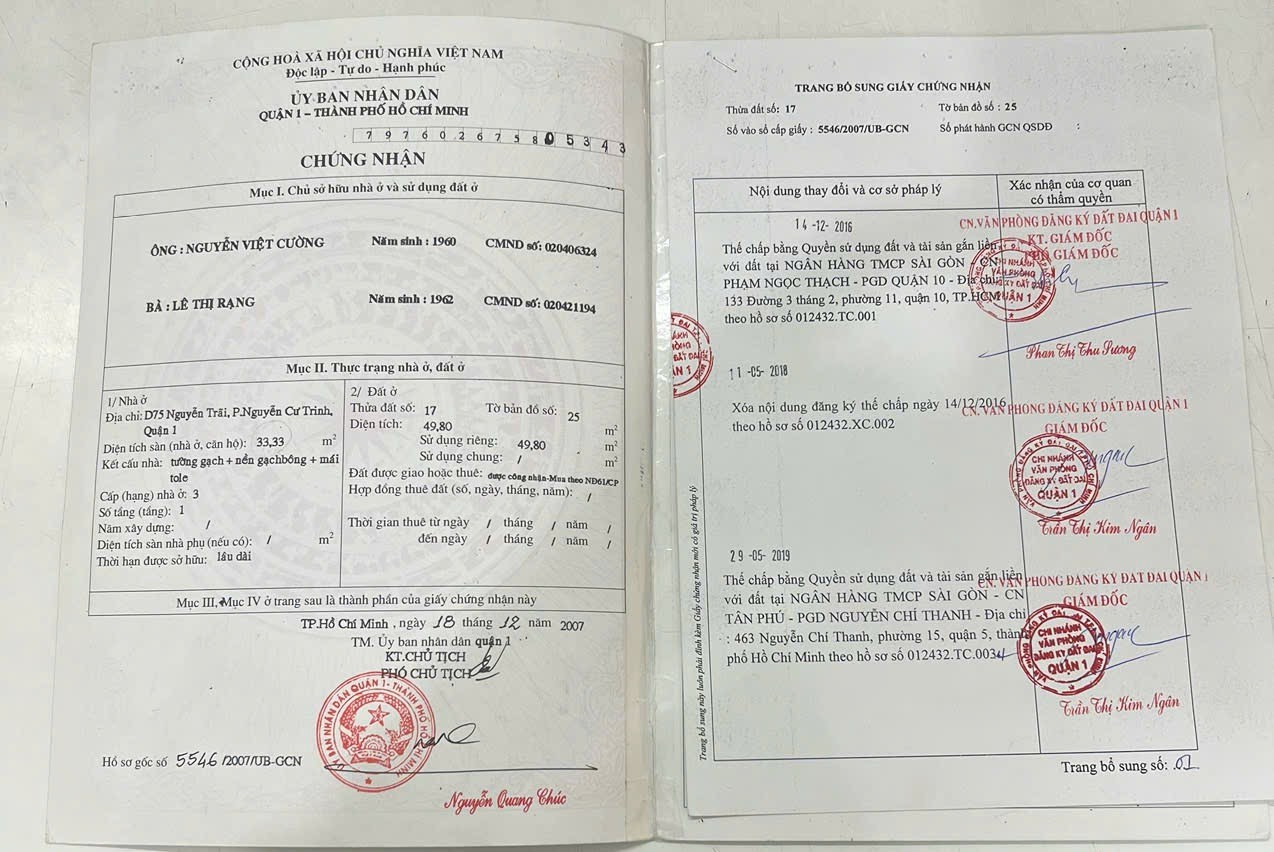 CỘNG HOÀ XÃ HỘI CHỦ NGHĨA VIỆT NAM
Độc lập - Tự do - Hạnh phúc
ỦY BAN NHÂN DÂN
QUẬN 1 – THÀNH PHỐ HỒ CHÍ MINH
797602675805343
CHỨNG NHẬN
Mục I. Chủ sở hữu nhà ở và sử dụng đất ở
ÔNG : NGUYỄN VIỆT CƯỜNG Năm sinh : 1960 CMND số: 020406324
BÀ : LÊ THỊ RẠNG Năm sinh : 1962 CMND số: 020421194
Mục II. Thực trạng nhà ở, đất ở
1/ Nhà ở
Địa chỉ: D75 Nguyễn Trãi, P.Nguyễn Cư Trinh,
Quận 1
Diện tích sàn (nhà ở, căn hộ): 33,33 m²
Kết cấu nhà: tường gạch + nền gạchbông + mái
tole
Cấp (hạng) nhà ở: 3
Số tầng (tầng): 1
Năm xây dựng: /
Diện tích sàn nhà phụ (nếu có): / m²
Thời hạn được sở hữu: lâu dài
2/ Đất ở
Thửa đất số: 17 Tờ bản đồ số: 25
Diện tích: 49,80 m²
Sử dụng riêng: 49,80 m²
Sử dụng chung: / m²
Đất được giao hoặc thuê: được công nhận-Mua theo NĐ61/CP
Hợp đồng thuê đất (số, ngày, tháng, năm): /
Thời gian thuê từ ngày / tháng / năm /
đến ngày / tháng / năm /
Mục III, Mục IV ở trang sau là thành phần của giấy chứng nhận này
TP.Hồ Chí Minh , ngày 18 tháng 12 năm 2007
TM. Ủy ban nhân dân quận 1
KT.CHỦ TỊCH
PHÓ CHỦ TỊCH
ỦY BAN NHÂN DÂN QUẬN 1 - THÀNH PHỐ HỒ CHÍ MINH
Hồ sơ gốc số 5546 /2007/UB-GCN
Nguyễn Quang Chúc
TRANG BỔ SUNG GIẤY CHỨNG NHẬN
Thửa đất số: 17 Tờ bản đồ số : 25
Số vào sổ cấp giấy : 5546/2007/UB-GCN Số phát hành GCN QSDĐ :
Nội dung thay đổi và cơ sở pháp lý
Xác nhận của cơ quan
có thẩm quyền
14 -12- 2016
Thế chấp bằng Quyền sử dụng đất và tài sản gắn liền
với đất tại NGÂN HÀNG TMCP SÀI GÒN - CN
PHẠM NGỌC THẠCH - PGD QUẬN 10 - Địa chỉ:
133 Đường 3 tháng 2, phường 11, quận 10, TP.HCM
theo hồ sơ số 012432.TC.001
CN.VĂN PHÒNG ĐĂNG KÝ ĐẤT ĐAI QUẬN 1
KT. GIÁM ĐỐC
PHÓ GIÁM ĐỐC
CHI NHÁNH
VĂN PHÒNG
ĐĂNG KÝ ĐẤT ĐAI
QUẬN 1
Phan Thị Thu Sương
11 -05- 2018
Xóa nội dung đăng ký thế chấp ngày 14/12/2016
theo hồ sơ số 012432.XC.002
CN. VĂN PHÒNG ĐĂNG KÝ ĐẤT ĐAI QUẬN 1
GIÁM ĐỐC
CHI NHÁNH
VĂN PHÒNG
ĐĂNG KÝ ĐẤT ĐAI
QUẬN 1
Trần Thị Kim Ngân
29 -05- 2019
Thế chấp bằng Quyền sử dụng đất và tài sản gắn liền
với đất tại NGÂN HÀNG TMCP SÀI GÒN - CN
TÂN PHÚ - PGD NGUYỄN CHÍ THANH - Địa chỉ
: 463 Nguyễn Chí Thanh, phường 15, quận 5, thành
phố Hồ Chí Minh theo hồ sơ số 012432.TC.003
CN. VĂN PHÒNG ĐĂNG KÝ ĐẤT ĐAI QUẬN 1
GIÁM ĐỐC
CHI NHÁNH
VĂN PHÒNG
ĐĂNG KÝ ĐẤT ĐAI
QUẬN 1
Trần Thị Kim Ngân
Trang bổ sung này luôn phải đính kèm Giấy chứng nhận mới có giá trị pháp lý
Trang bổ sung số: 01